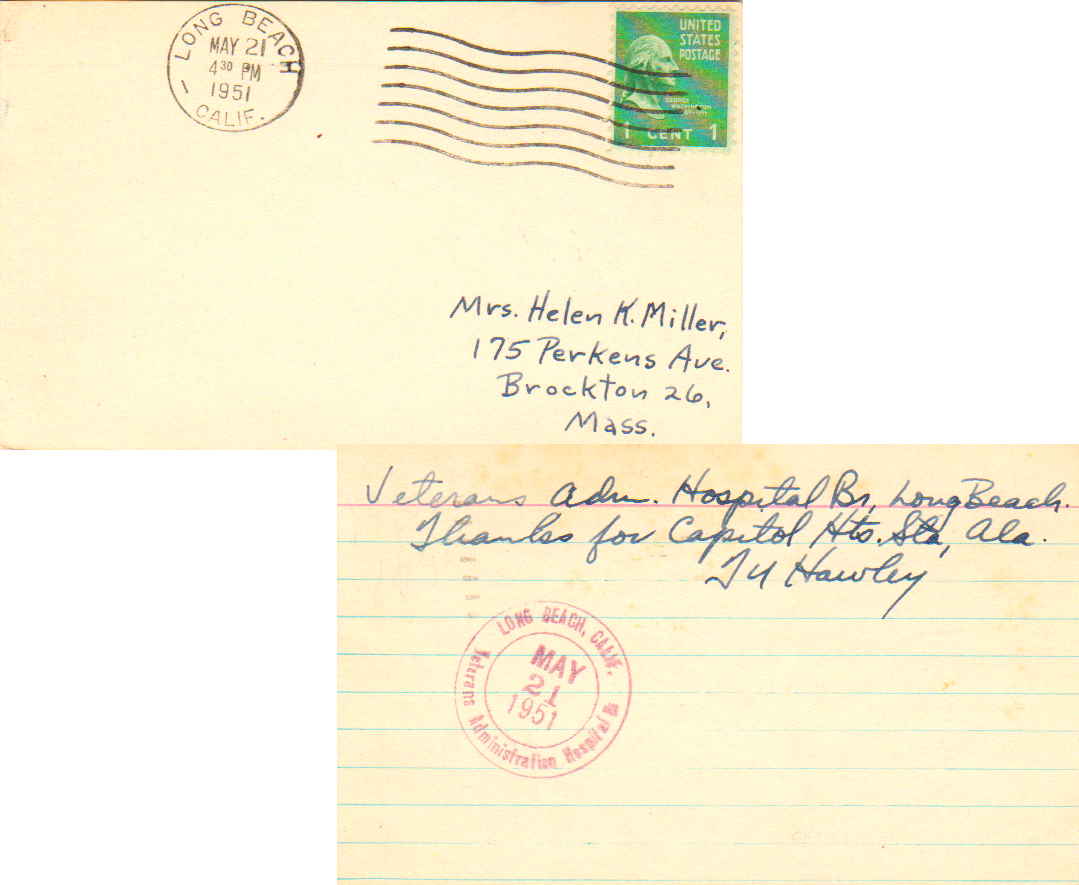 LONG BEACH
MAY 21
4 30 PM
1951
1
CALIF.
UNITED
STATES
POSTAGE
GEORGE
WASHINGTON
1 CENT 1
Mrs. Helen K. Miller,
175 Perkens Ave.
Brockton 26,
Mass.
Veterans Adm. Hospital Br, Long Beach.
Thanks for Capitol Hts. Sta, Ala.
Hawley
LONG BEACH, CALIF.
MAY
21
1951
Veterans Administration Hospital Br